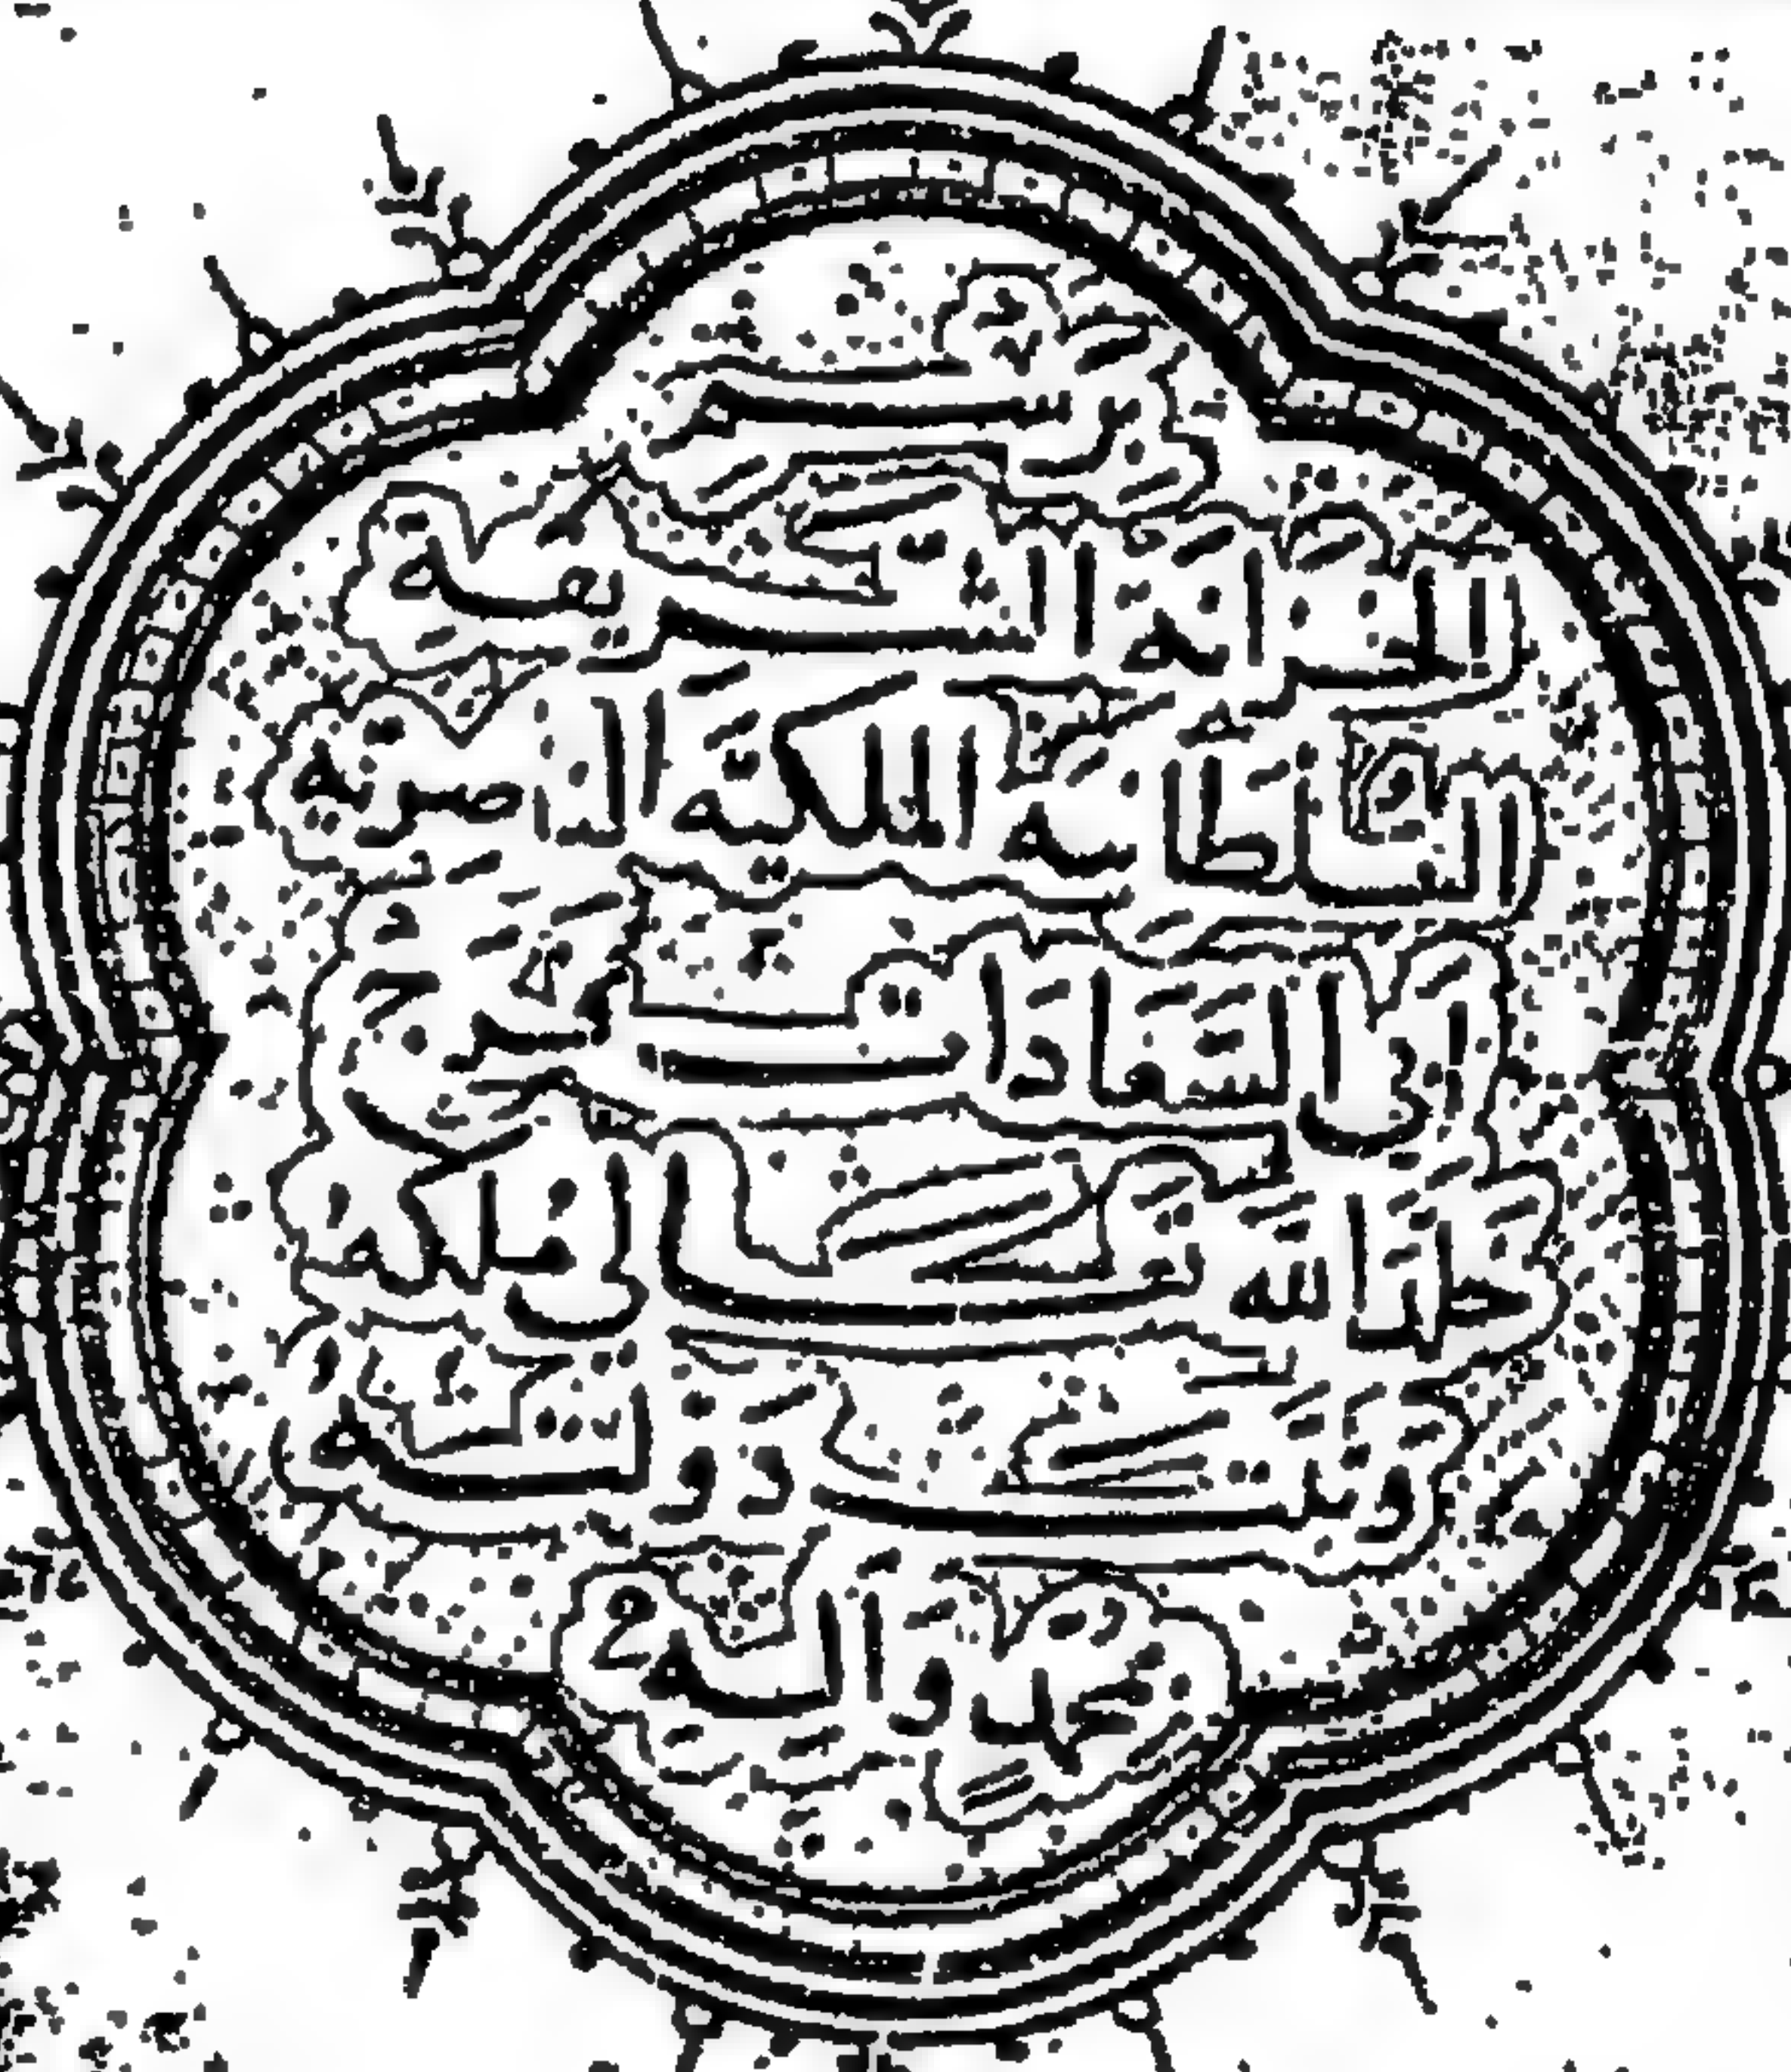 برسم
الخزانة الشريفة
السلطانية الملكية الناصرية
ابي السعادات فرج
خلد الله تعالى ملكه
وثبت دولته
بمحمد واله